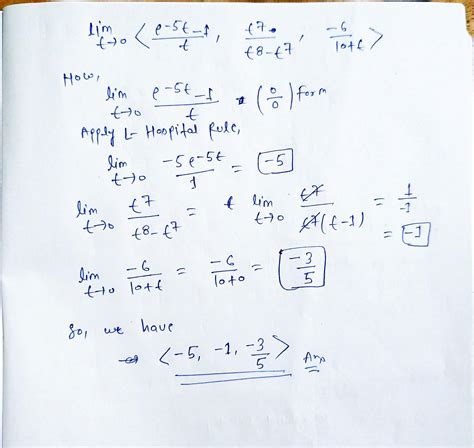 lim t→0 < e^-5t - 1 / t , t^7 / t^8 - t^7 , -6 / 10+t >
Now,
lim t→0 e^-5t - 1 / t (0/0) form
Apply L-Hospital Rule,
lim t→0 -5e^-5t / 1 = -5
lim t→0 t^7 / t^8 - t^7 = lim t→0 t^7 / t^7(t-1) = 1 / -1
= -1
lim t→0 -6 / 10+t = -6 / 10+0 = -3 / 5
So, we have
< -5, -1, -3/5 > Ans